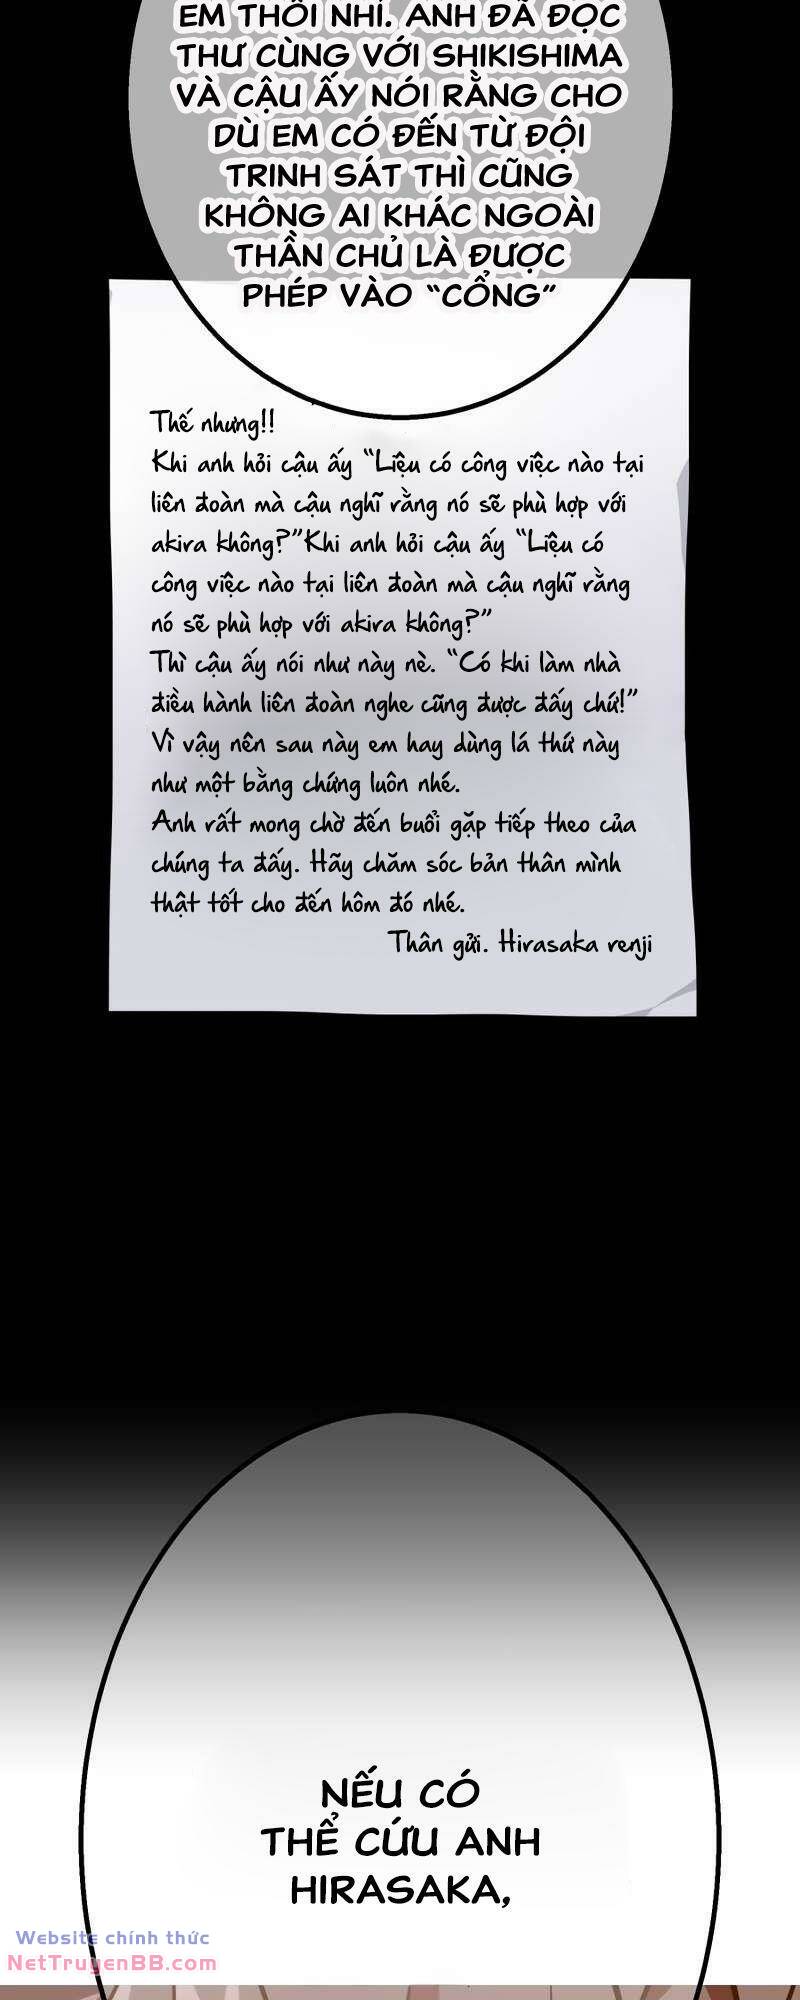 EM THÔI NHỈ. ANH ĐÃ ĐỌC
THƯ CÙNG VỚI SHIKISHIMA
VÀ CẬU ẤY NÓI RẰNG CHO
DÙ EM CÓ ĐẾN TỪ ĐỘI
TRINH SÁT THÌ CŨNG
KHÔNG AI KHÁC NGOÀI
THẦN CHỦ LÀ ĐƯỢC
PHÉP VÀO “CỔNG”
Thế nhưng!!
Khi anh hỏi cậu ấy “Liệu có công việc nào tại
liên đoàn mà cậu nghĩ rằng nó sẽ phù hợp với
akira không?”Khi anh hỏi cậu ấy “Liệu có
công việc nào tại liên đoàn mà cậu nghĩ rằng
nó sẽ phù hợp với akira không?”
Thì cậu ấy nói như này nè. “Có khi làm nhà
điều hành liên đoàn nghe cũng được đấy chứ!”
Vì vậy nên sau này em hay dùng lá thứ này
như một bằng chứng luôn nhé.
Anh rất mong chờ đến buổi gặp tiếp theo của
chúng ta đấy. Hãy chăm sóc bản thân mình
thật tốt cho đến hôm đó nhé.
Thân gửi. Hirasaka renji
NẾU CÓ
THỂ CỨU ANH
HIRASAKA,
Website chính thức
NetTruyenBB.com